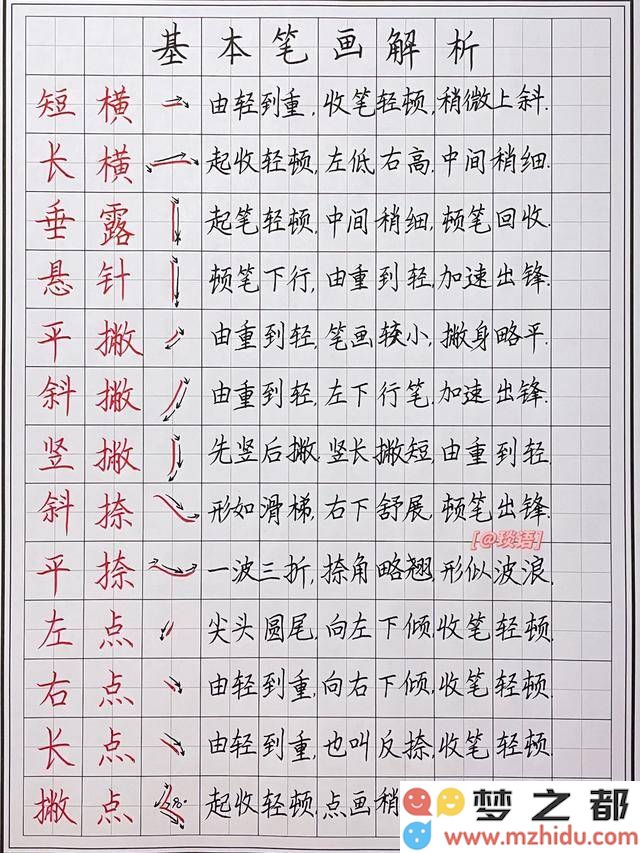 基本笔画解析
短横 由轻到重,收笔轻顿,稍微上斜.
长横 起收轻顿,左低右高,中间稍细.
垂露 起笔轻顿,中间稍细,顿笔回收.
悬针 顿笔下行,由重到轻,加速出锋.
平撇 由重到轻,笔画较小,撇身略平.
斜撇 由重到轻,左下行笔,加速出锋.
竖撇 先竖后撇,竖长撇短,由重到轻.
斜捺 形如滑梯,右下舒展,顿笔出锋.
[@琰语]
平捺 一波三折,捺角略翘,形似波浪.
左点 尖头圆尾,向左下倾,收笔轻顿.
右点 由轻到重,向右下倾,收笔轻顿.
长点 由轻到重,也叫反捺,收笔轻顿.
撇点 起收轻顿,点画稍
梦之都
www.mzhidu.com